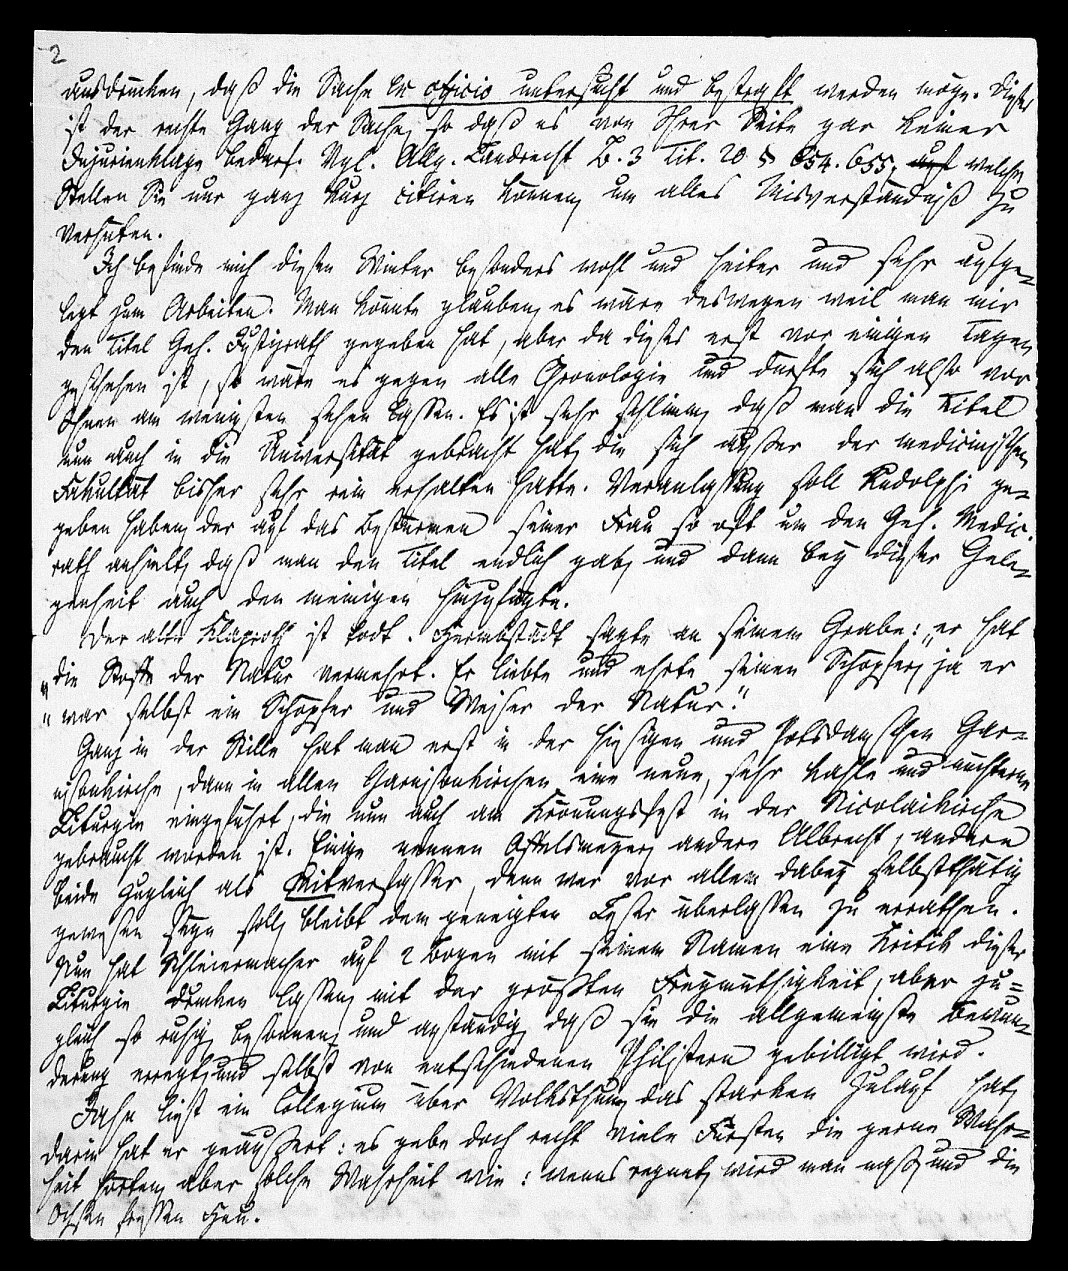 2
ausdrucken, daß die Sache ex officio untersucht und bestraft werden möge. Dieses
ist der rechte Gang der Sache, so daß es von Ihrer Seite gar keiner
Injurienklage bedarf. Vgl. Allg. Landrecht Th. 3 Tit. 20 § 654. 655, auf welche
Stellen Sie nur ganz kurz citiren können, um alles Misverständniß zu
verhüten.
Ich befinde mich diesen Winter besonders wohl und heiter und sehr aufge-
legt zum Arbeiten. Man könnte glauben, es wäre deswegen weil man mir
den Titel Geh. Justizrath gegeben hat, aber da dieses erst vor einigen Tagen
geschehen ist, so wäre es gegen alle Chronologie und dürfte sich also vor
Ihnen am wenigsten sehen lassen. Es ist sehr schlimm, daß man die Titel
nun auch in die Universität gebracht hat, die sich außer der medicinischen
Fakultät bisher sehr rein erhalten hatte. Veranlassung soll Rudolphi ge-
geben haben, der auf das Bestürmen seiner Frau so oft um den Geh. Medic.
rath anhielt, daß man den Titel endlich gab, und dann bey dieser Gele-
genheit auch den meinigen hinzufügte.
Der alte Klaproth ist todt. Hermbstädt sagte an seinem Grabe: „er hat
„die Stoffe der Natur vermehrt. Er liebte und ehrte seinen Schöpfer, ja er
„war selbst ein Schöpfer und Weiser der Natur."
Ganz in der Stille hat man erst in der hiesigen und Potsdamschen Gar-
nisonkirche, dann in allen Garnisonkirchen eine neue, sehr kahle und nüchterne
Liturgie eingeführt, die nun auch am Krönungsfest in der Nicolaikirche
gebraucht worden ist. Einige nennen Offelsmeyer, andere Albrecht, andere
beide zugleich als Mitverfasser, denn wer vor allem dabey selbstthätig
gewesen seyn soll, bleibt dem geneigten Leser überlassen zu errathen.
Nun hat Schleiermacher auf 2 Bogen mit seinem Namen eine Kritik dieser
Liturgie drucken lassen, mit der größten Freymüthigkeit, aber zu=
gleich so ruhig, besonnen, und anständig, daß sie die allgemeinste Bewun-
derung erregt, und selbst von entschiedenen Philistern gebilligt wird.
Jahn liest ein Collegium über Volksthum, das starken Zulauf hat,
darin hat er geäußert: es gebe doch recht viele Fürsten die gerne Wahr-
heit hörten, aber solche Wahrheit wie: wenns regnet, wird man naß, und die
Ochsen fressen Heu.